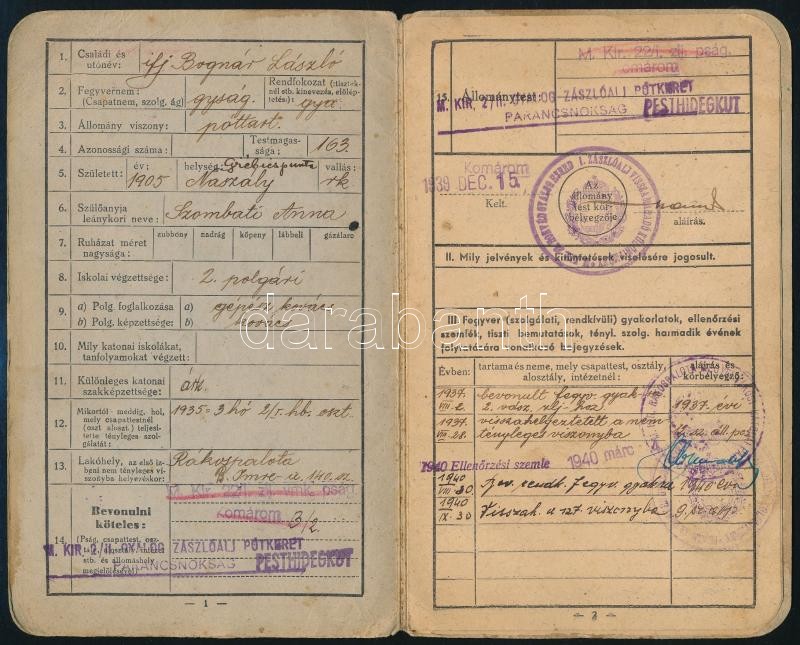 1. Családi és utónév: ifj Bognár László
2. Fegyvernem: (Csapatnem, szolg. ág) gyság. Rendfokozat (tisztek-
nél stb. kinevezés, előlép-
tetés): gya
3. Állomány viszony: póttart.
4. Azonossági száma: Testmagas-
sága: 163
5. Született: év: 1905 helység: Naszály vallás: rk
6. Szülőanyja leánykori neve: Szombati Anna
7. Ruházat méret nagysága: zubbony nadrág köpeny lábbeli gázálarc
8. Iskolai végzettsége: 2 polgári
9. a) Polg. foglalkozása a) gépész kovács
b) Polg. képzettsége: b) kovács
10. Mily katonai iskolákat, tanfolyamokat végzett:
11. Különleges katonai szakképzettsége:
12. Mikortól - meddig, hol,
mely csapattestnél
(oszt. aloszt.) telje-
tette tényleges szol-
gálatát: 1935 = 3 hó 2/I. hb. oszt.
13. Lakóhely, az első íz-
beni nem tényleges vi-
szonyba helyezéskor: Rákospalota
B. Imre u. 140. sz.
M. Kir. 22/I. zlj. vmk. pság.
Komárom
3/2
Bevonulni
köteles:
14.
M. KIR. 2/II. GYALOG ZÁSZLÓALJ PÓTKERET
PARANCSNOKSÁG PESTHIDEGKUT
stb. és állomáshely
megjelölésével)
— 1 —
M. Kir. 22/I. zlj. pság.
Komárom
15. Állománytest:
M. KIR. 2/II. GYALOG ZÁSZLÓALJ PÓTKERET
PARANCSNOKSÁG PESTHIDEGKUT
Komárom
1939 DEC. 15.
Kelt.
Az
állomány
test kör-
bélyegzője
aláírás.
II. Mily jelvények és kitüntetések viselésére jogosult.
III. Fegyver (szolgálati, rendkívüli) gyakorlatok, ellenőrzési
szemlék, tiszti bemutatások, tényl. szolg. harmadik évének
folytatására vonatkozó bejegyzések.
Évben: tartama és neme, mely csapattest, osztály,
alosztály, intézetnél: aláírás és
körbélyegző:
1937 VIII. 2. bevonult fegyv. gyak.
2. vász. zlj-hoz 1937. évi
1937. VIII. 28. visszahelyeztetett a nem
tényleges viszonyba
1940 Ellenőrzési szemle 1940 márc
1940 VIII. 30. fegyv. gyakra 1940 évi
1940 IX. 30 Visszah. a nt. viszonyba
— 2 —
darabanth